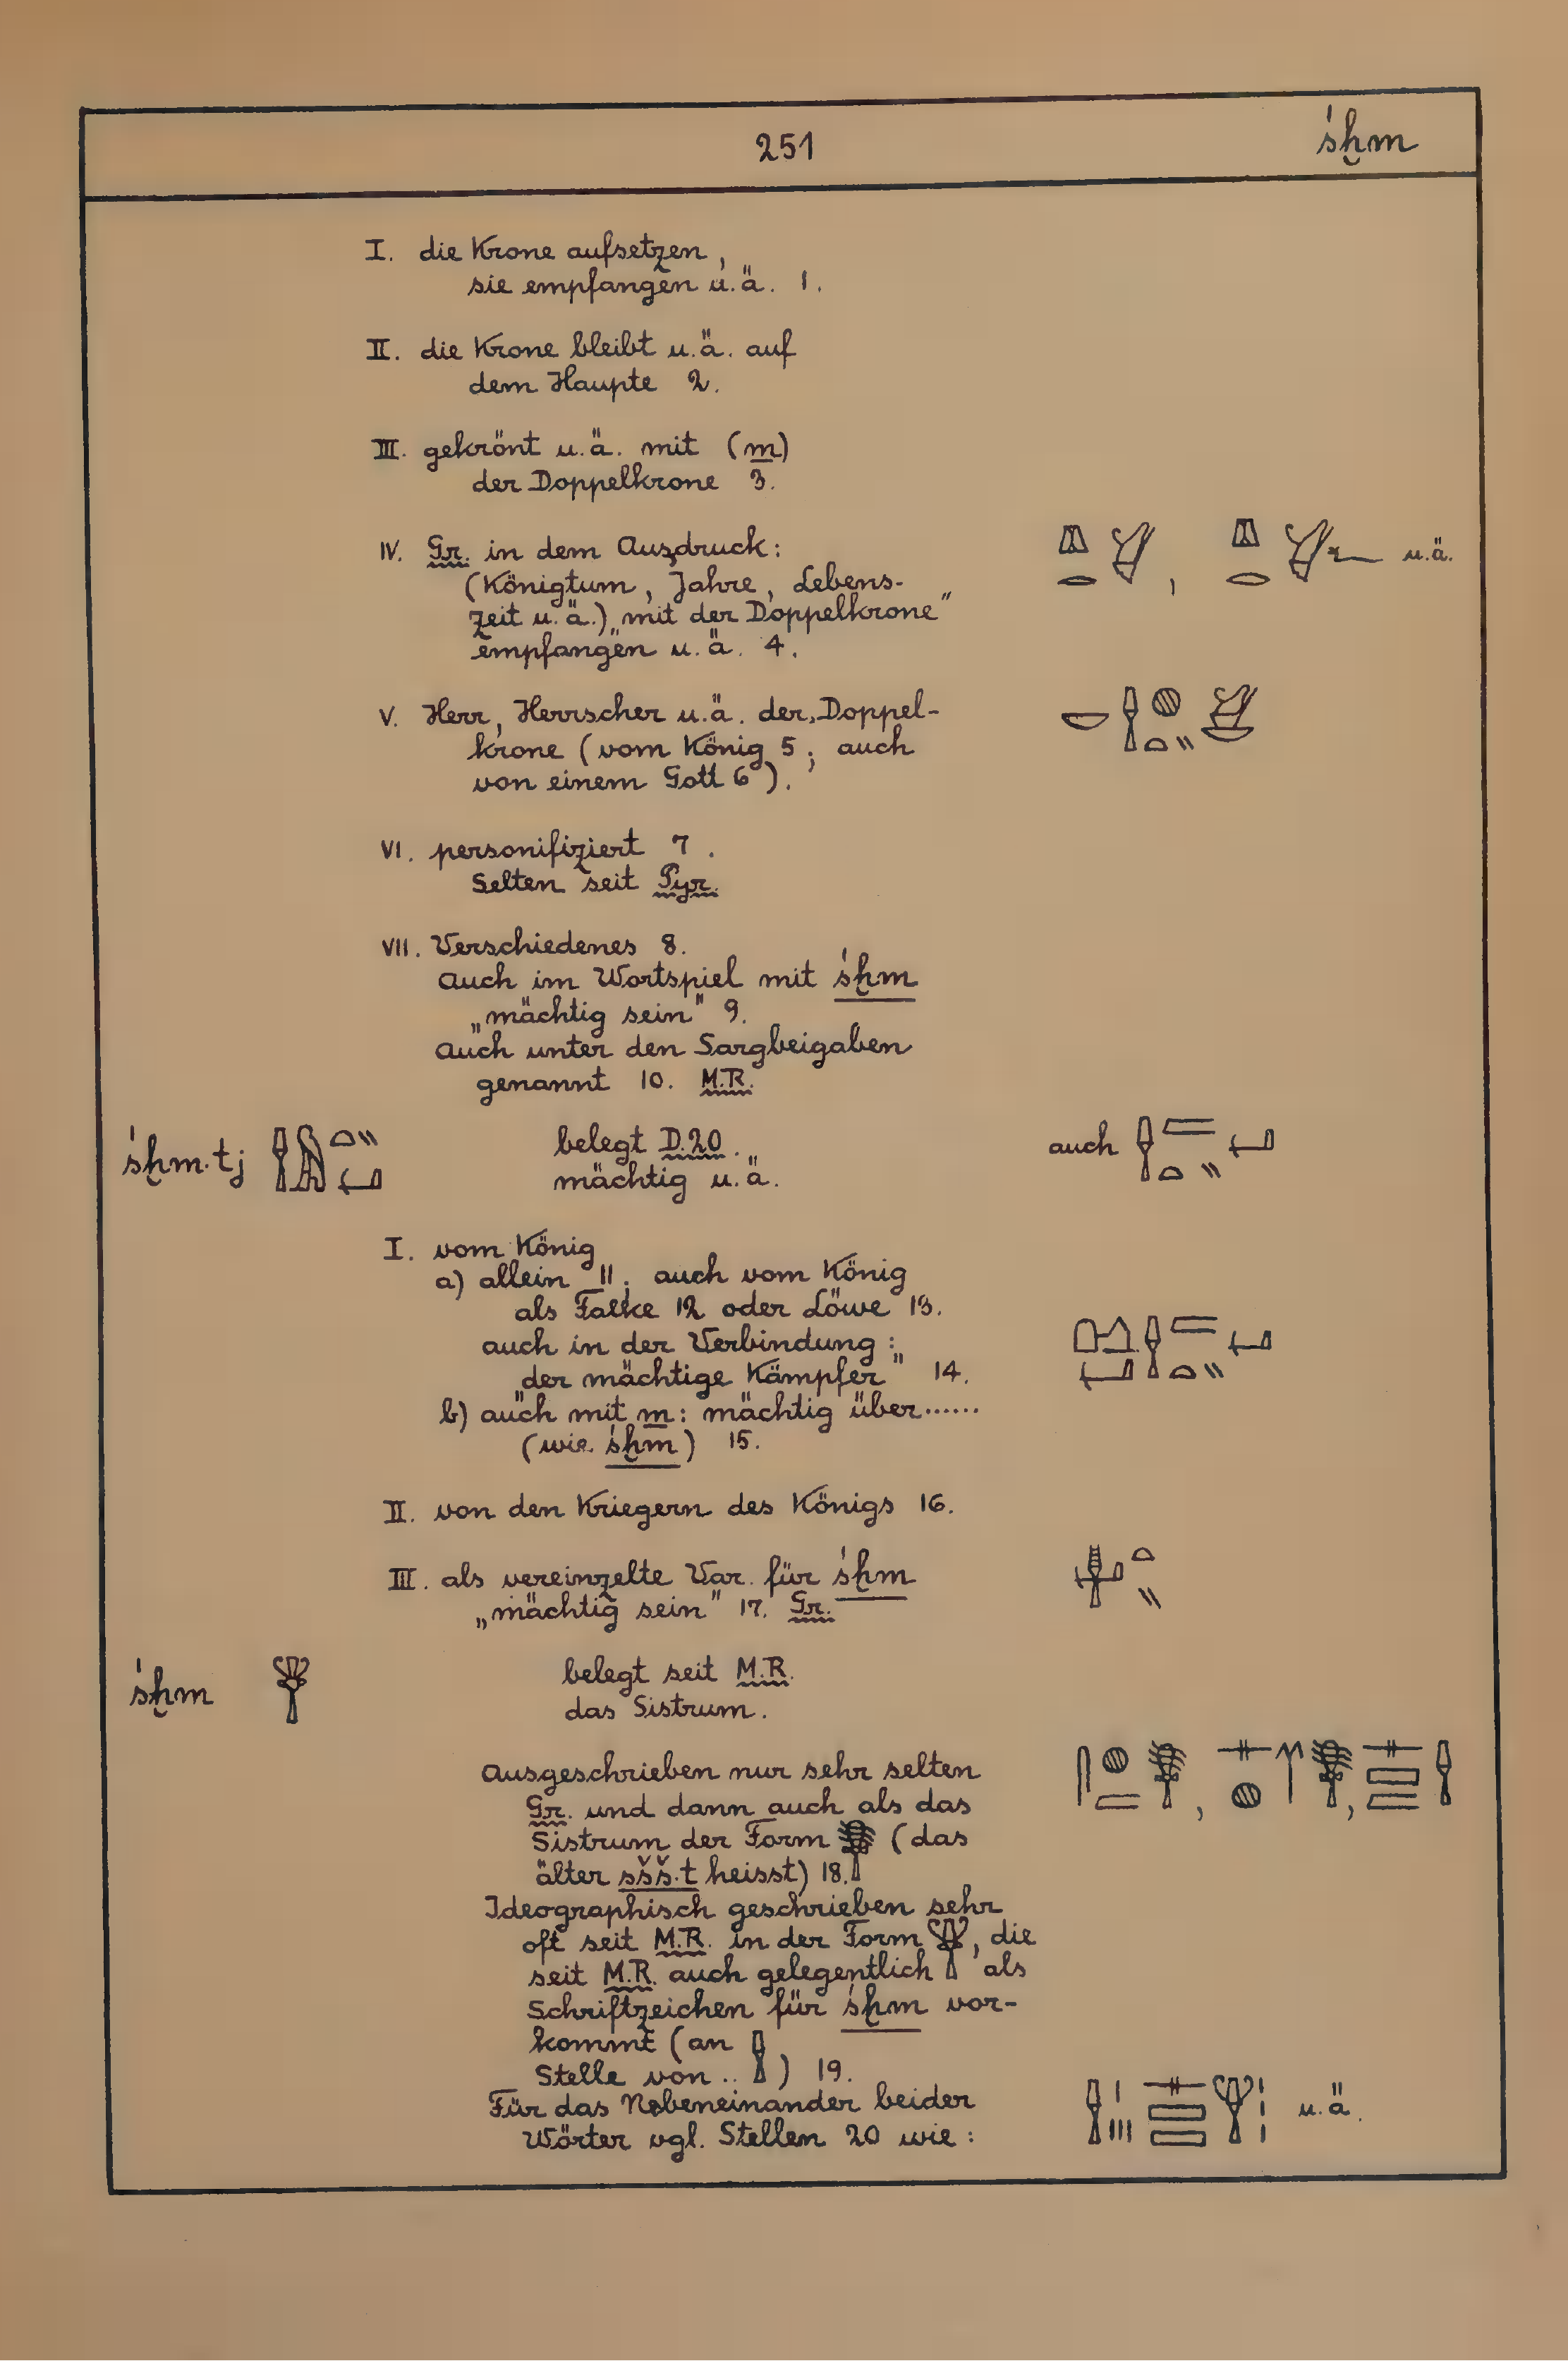 251 śḫm
I. die Krone aufsetzen,
sie empfangen u.ä. 1.
II. die Krone bleibt u.ä. auf
dem Haupte 2.
III. gekrönt u.ä. mit (m)
der Doppelkrone 3.
IV. Gr. in dem Ausdruck:
(Königtum, Jahre, Lebens-
zeit u.ä.) „mit der Doppelkrone"
empfangen u.ä. 4.
, u.ä.
V. Herr, Herrscher u.ä. der Doppel-
krone (vom König 5; auch
von einem Gott 6).
VI. personifiziert 7.
Selten seit Pyr.
VII. Verschiedenes 8.
Auch im Wortspiel mit śḫm
„mächtig sein" 9.
Auch unter den Sargbeigaben
genannt 10. M.R.
śḫm.tj belegt D.20. auch
mächtig u.ä.
I. vom König
a) allein 11; auch vom König
als Falke 12 oder Löwe 13.
auch in der Verbindung:
„der mächtige Kämpfer" 14.
b) auch mit m: mächtig über......
(wie śḫm) 15.
II. von den Kriegern des Königs 16.
III. als vereinzelte Var. für śḫm
„mächtig sein" 17. Gr.
śḫm belegt seit M.R.
das Sistrum.
Ausgeschrieben nur sehr selten
Gr. und dann auch als das
Sistrum der Form (das
älter sšš.t heisst) 18.
Ideographisch geschrieben sehr
oft seit M.R. in der Form , die
seit M.R. auch gelegentlich als
Schriftzeichen für śḫm vor-
kommt (an
Stelle von .. ) 19.
Für das Nebeneinander beider
Wörter vgl. Stellen 20 wie: u.ä.